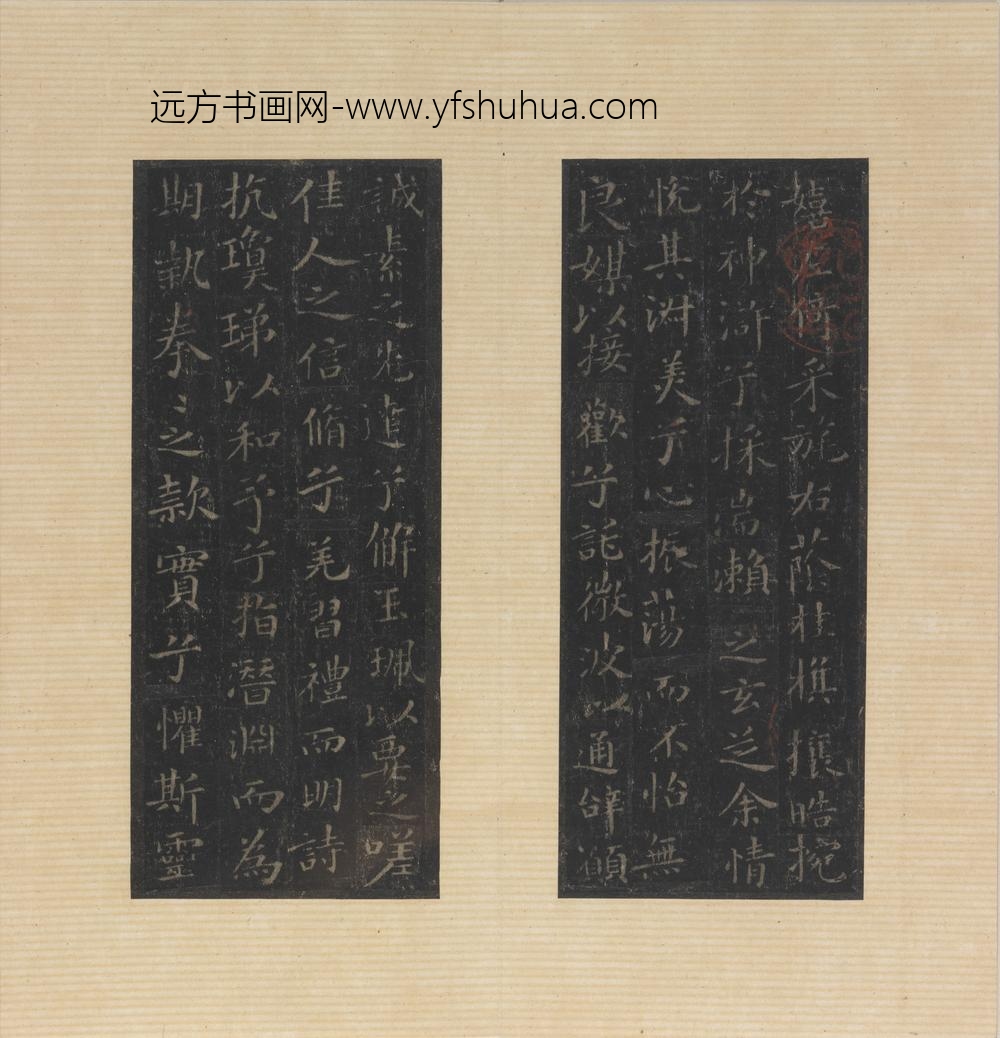 远方书画网-www.yfshuhua.com
嬉左倚采旄右蔭桂旗攘皓捥
於神滸兮採湍瀨之玄芝余情
悅其淑美兮心振蕩而不怡無
良媒以接歡兮託微波以通辞願
誠素之先達兮解玉珮以要之嗟
佳人之信脩兮羌習禮而明詩
抗瓊珶以和予兮指潛淵而為
期執拳〻之款實兮懼斯靈